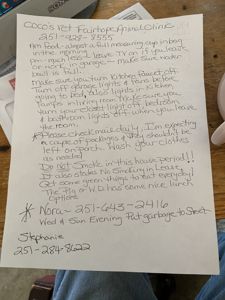 COCO'S Pet Fairhope Animal Clinic
251-928-8555
Am Food - almost a full measuring cup in bag
in the morning
pm - much less. Leave TV on if you leave
or work in garage - make sure water
bowl is full.
Make sure you turn kitchen faucet off.
Turn off garage lights & fans before
going to bed, Also lights in kitchen,
lamps in living room. Make sure you
turn your closet light off, bedroom
& bathroom lights off when you leave
the room.
* Please check mail daily. I'm expecting
a couple of packages & they shouldn't be
left on porch. Wash your clothes
as needed
Do not smoke in this house period!!!
It also states No Smoking in Lease.
Get some green things to eat everyday!
The Pig or W.D. has some nice lunch
options
* Nora - 251-643-2416
Wed & Sun Evening Put garbage to street
Stephanie
251-284-8622